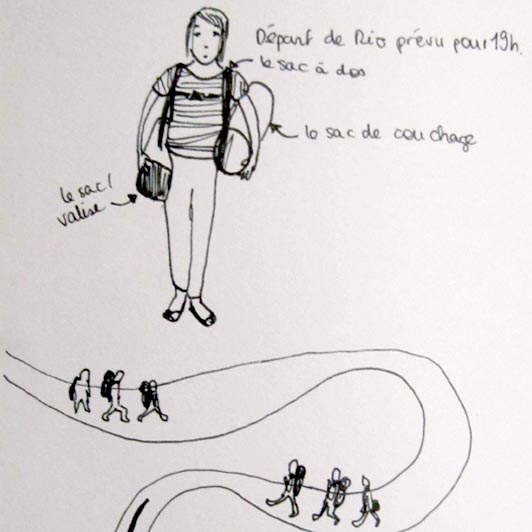 Départ de Rio prévu pour 19h.
le sac à dos
le sac de couchage
le sac/
valise